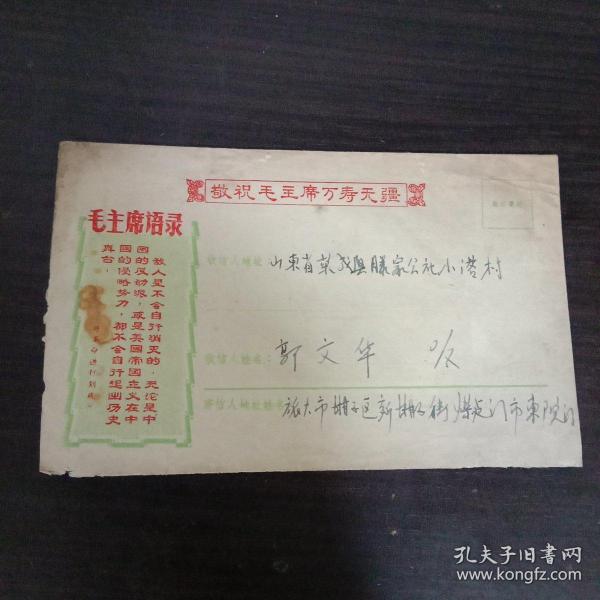 敬祝毛主席万寿无疆
毛主席语录
敌人是不会自行消灭的。无论是中
国的反动派，或是美国帝国主义在中
国的侵略势力，都不会自行退出历史
舞台。
收信人地址：山東省荣成县滕家公社小落村
收信人姓名：郭文华 收
寄信人地址姓名：旅大市甘子区新甘子街煤炭门市東院
孔夫子旧书网
www.kongfz.com